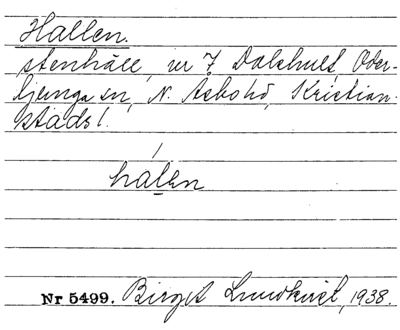 Hallen.
stenhäll, nr 7 Dalshult, Oder-
ljunga sn, N. Åsbo hd, Kristian-
stads l.
halen
Nr 5499. Birgit Lundkvist, 1938.